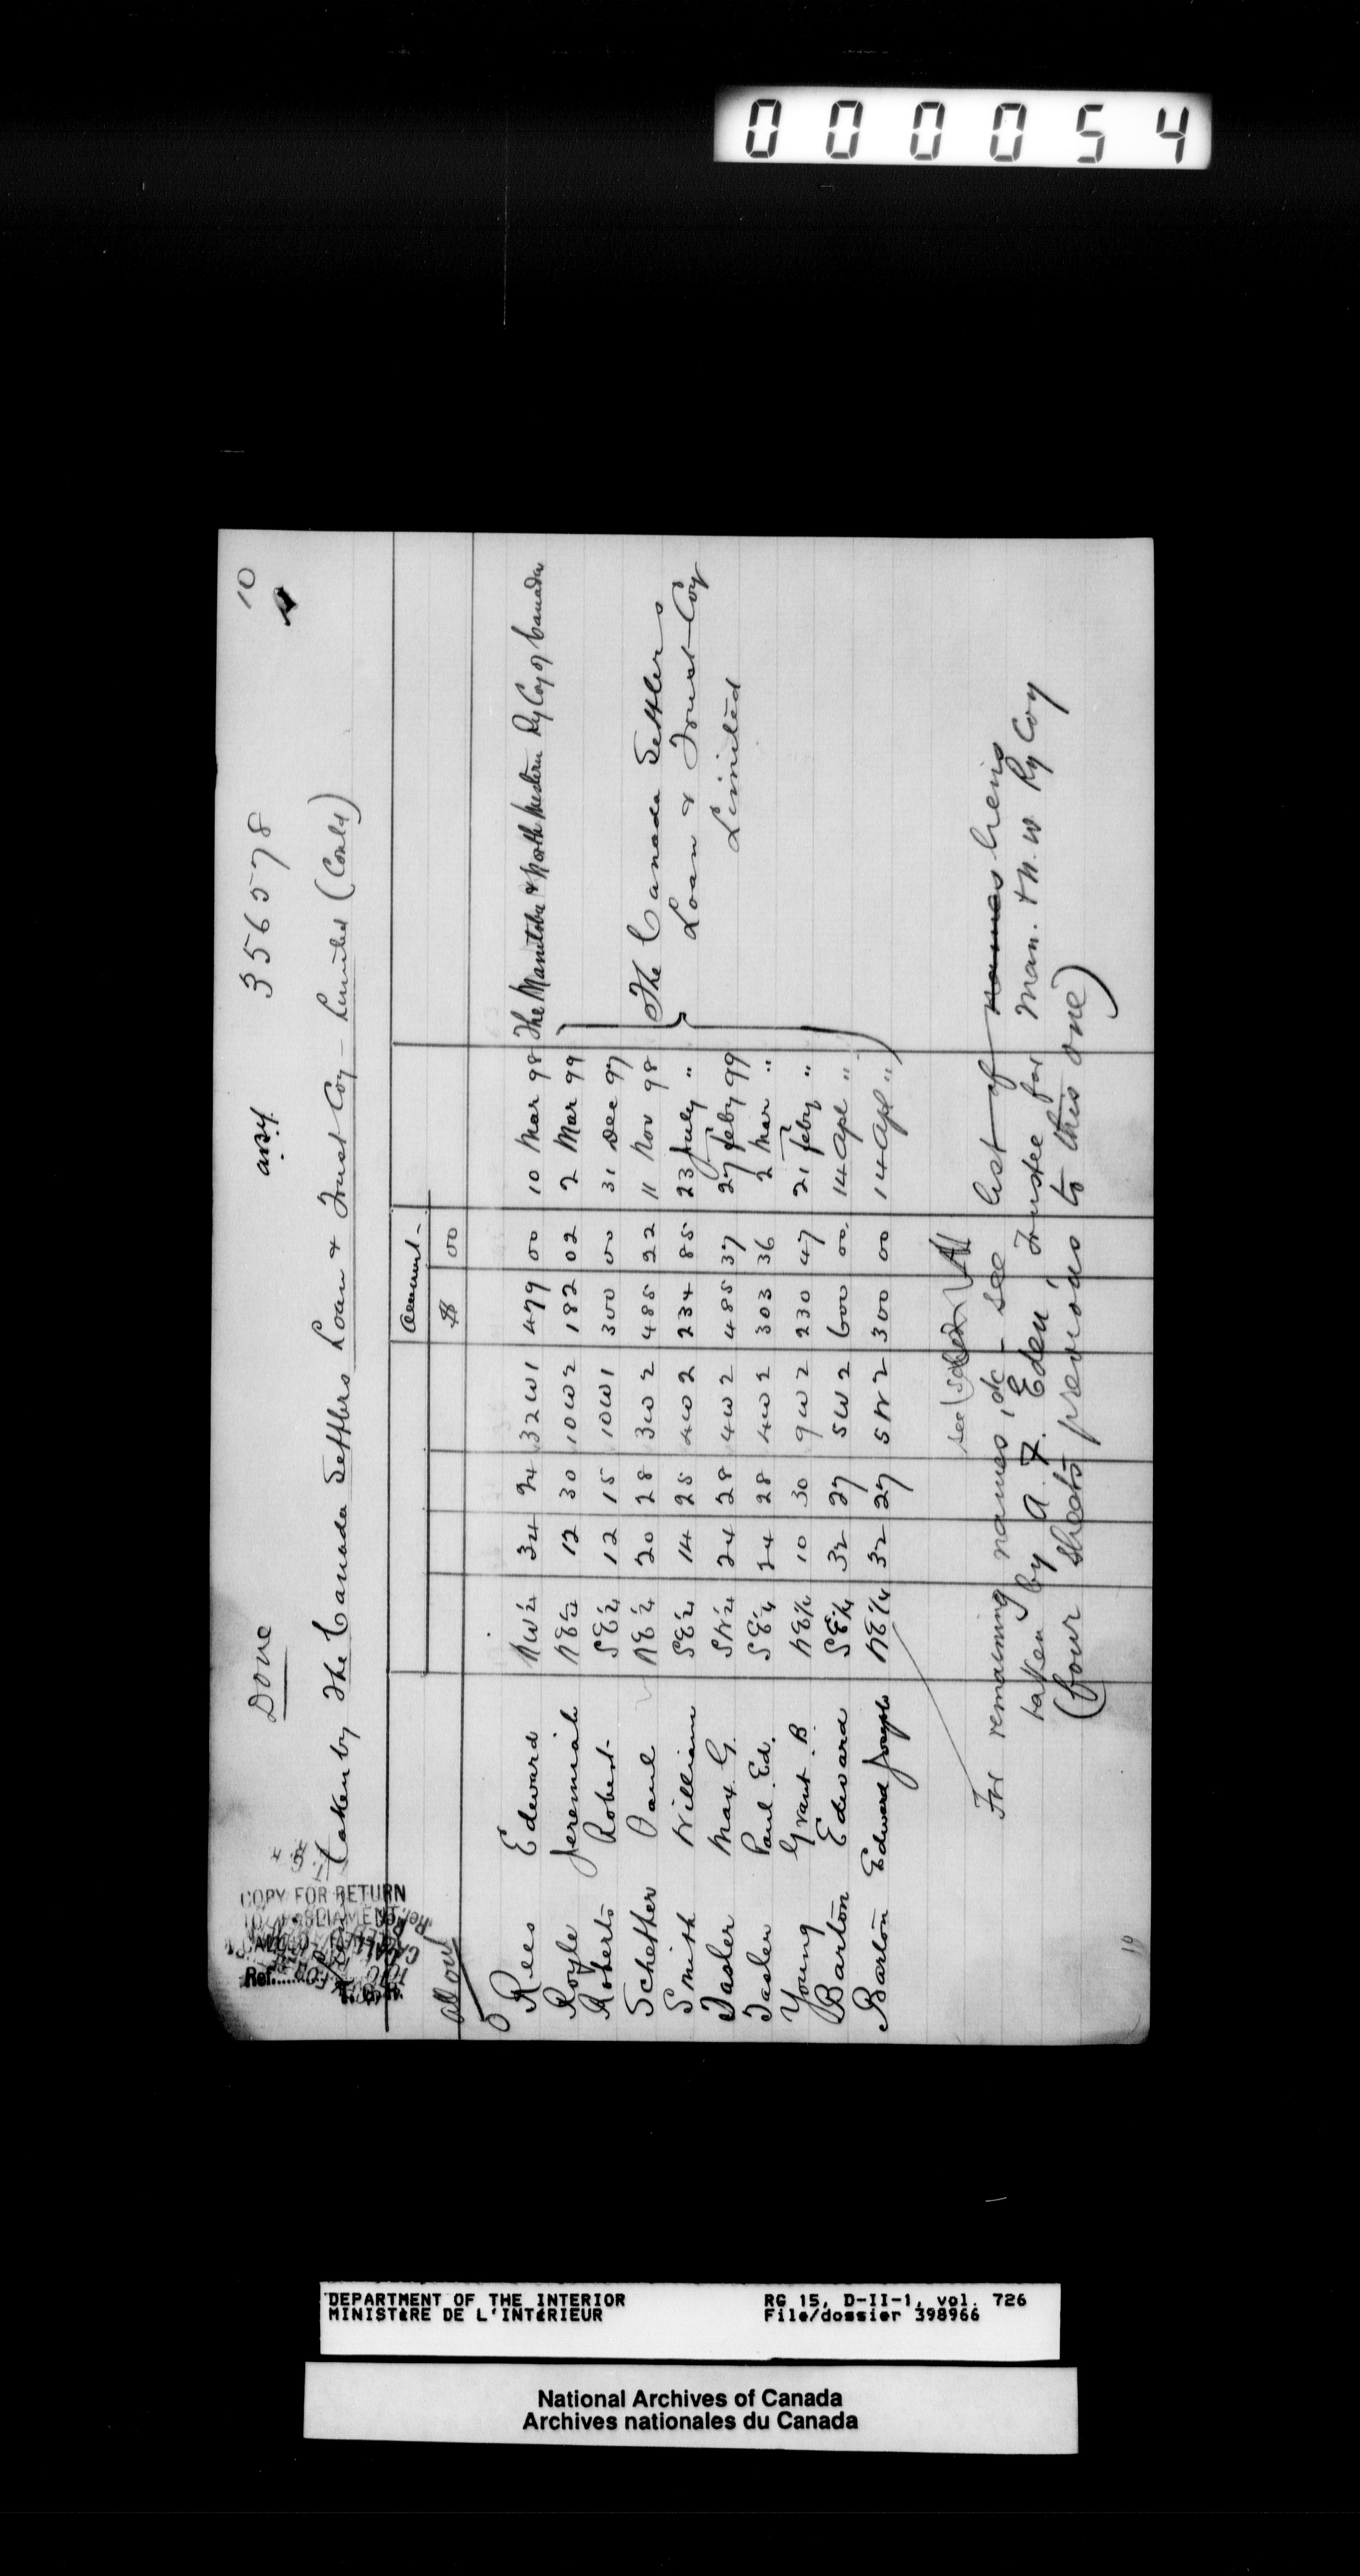 000054
10
Done assy. 356578
COPY FOR RETURN
Ref.
Taken by The Canada Settlers Loan & Trust Coy – Limited (Contd)
Amount –
$ 00
Rees Edward NW¼ 34 24 32W1 479 00 10 Mar 98 The Manitoba & North Western Ry Coy of Canada
Royle Jeremiah NE¼ 12 30 10W2 182 02 2 Mar 99
Roberts Robert SE¼ 12 15 10W1 300 00 31 Dec 97
Schether Paul NE¼ 20 28 3W2 485 22 11 Nov 98 The Canada Settlers
Smith William SE¼ 14 25 4W2 234 85 23 July " Loan & Trust Coy
Tasler Max G. SW¼ 24 28 4W2 485 37 27 Feby 99 Limited
Tasler Paul Ed. SE¼ 24 28 4W2 303 36 2 Mar "
Young Grant B. NE¼ 10 30 9W2 230 47 21 Feby "
Barton Edward SE¼ 32 27 5W2 600 00 14 Apl "
Barton Edward Joseph NE¼ 32 27 5W2 300 00 14 Apl "
see
For remaining names, etc – see list of names liens
taken by A. F. Eden, Trustee for Man. & N. W Ry Coy
(four sheets previous to this one)
DEPARTMENT OF THE INTERIOR RG 15, D-II-1, vol. 726
MINISTÈRE DE L'INTÉRIEUR File/dossier 398966
National Archives of Canada
Archives nationales du Canada